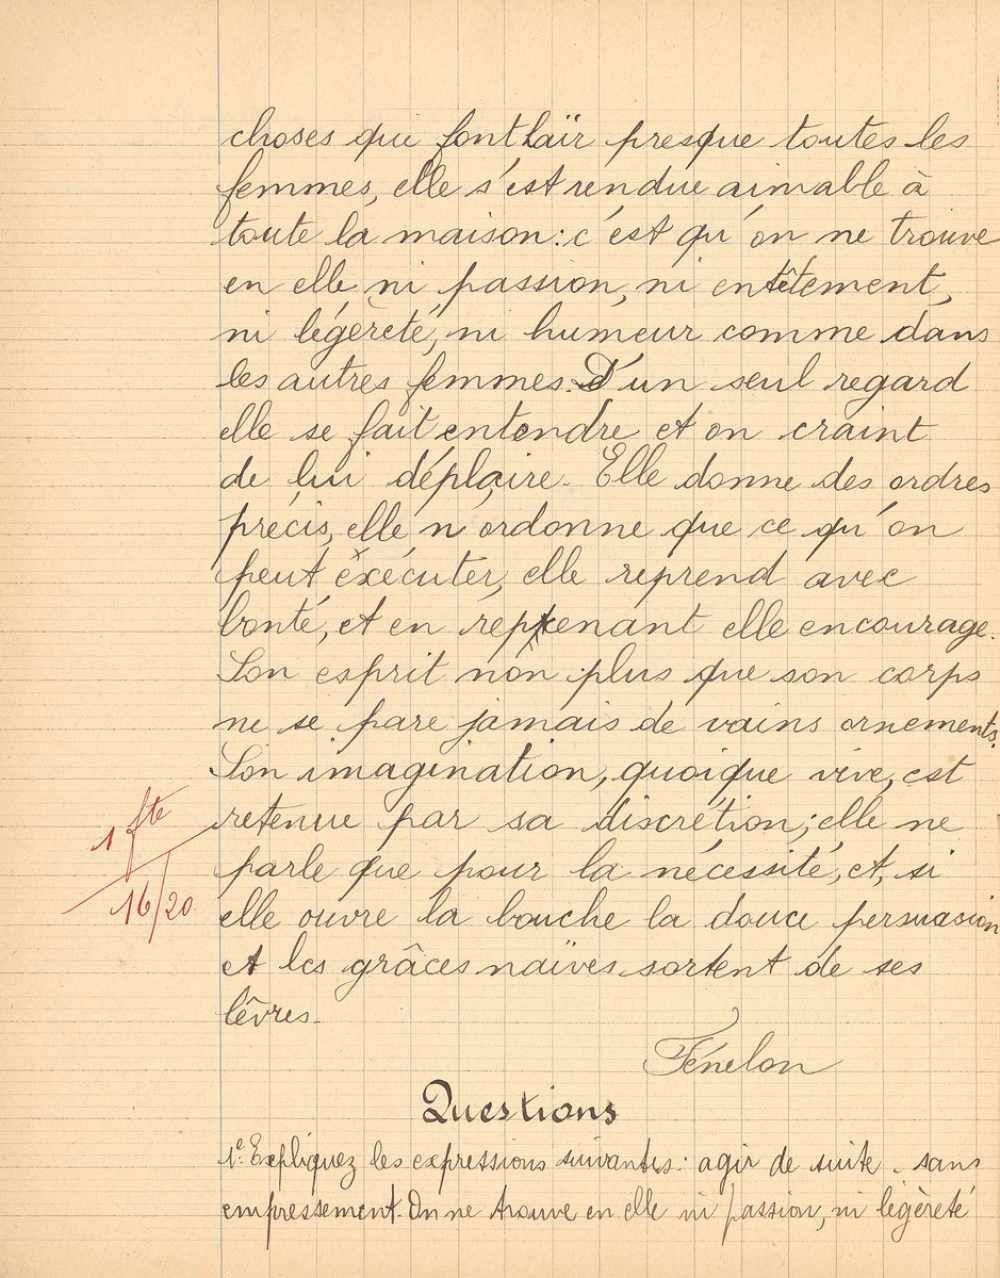 choses qui font haïr presque toutes les
femmes, elle s'est rendue aimable à
toute la maison: c'est qu'on ne trouve
en elle ni passion, ni entêtement,
ni légèreté, ni humeur comme dans
les autres femmes. D'un seul regard
elle se fait entendre et on craint
de lui déplaire. Elle donne des ordres
précis, elle n'ordonne que ce qu'on
peut éxécuter, elle reprend avec
bonté, et en reprenant elle encourage.
Son esprit non plus que son corps
ne se pare jamais de vains ornements.
Son imagination, quoique vive, est
retenue par sa discrétion; elle ne
parle que pour la nécessité, et, si
elle ouvre la bouche la douce persuasion
et les grâces naïves sortent de ses
lêvres.
1 fte
16/20
Fénelon
Questions
1e. Expliquez les expressions suivantes: agir de suite - sans
empressement. On ne trouve en elle ni passion, ni légèreté